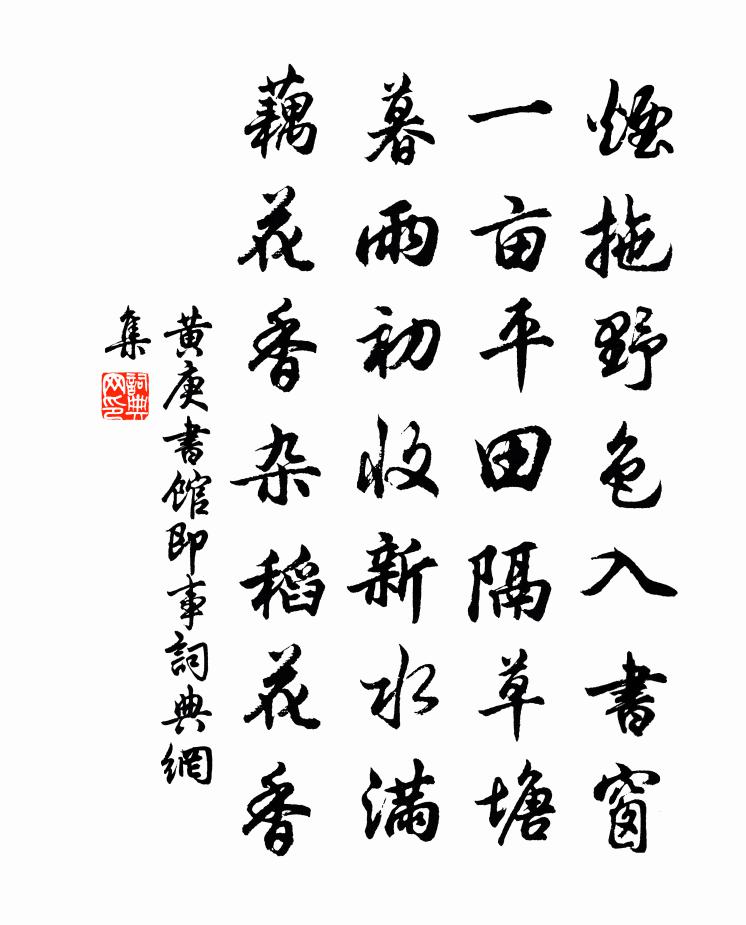 烟拖野色入書窗
一亩平田隔草塘
暮雨初收新水满
藕花香杂稻花香
黄庚書馆即事詞典網
集
詞典
网印